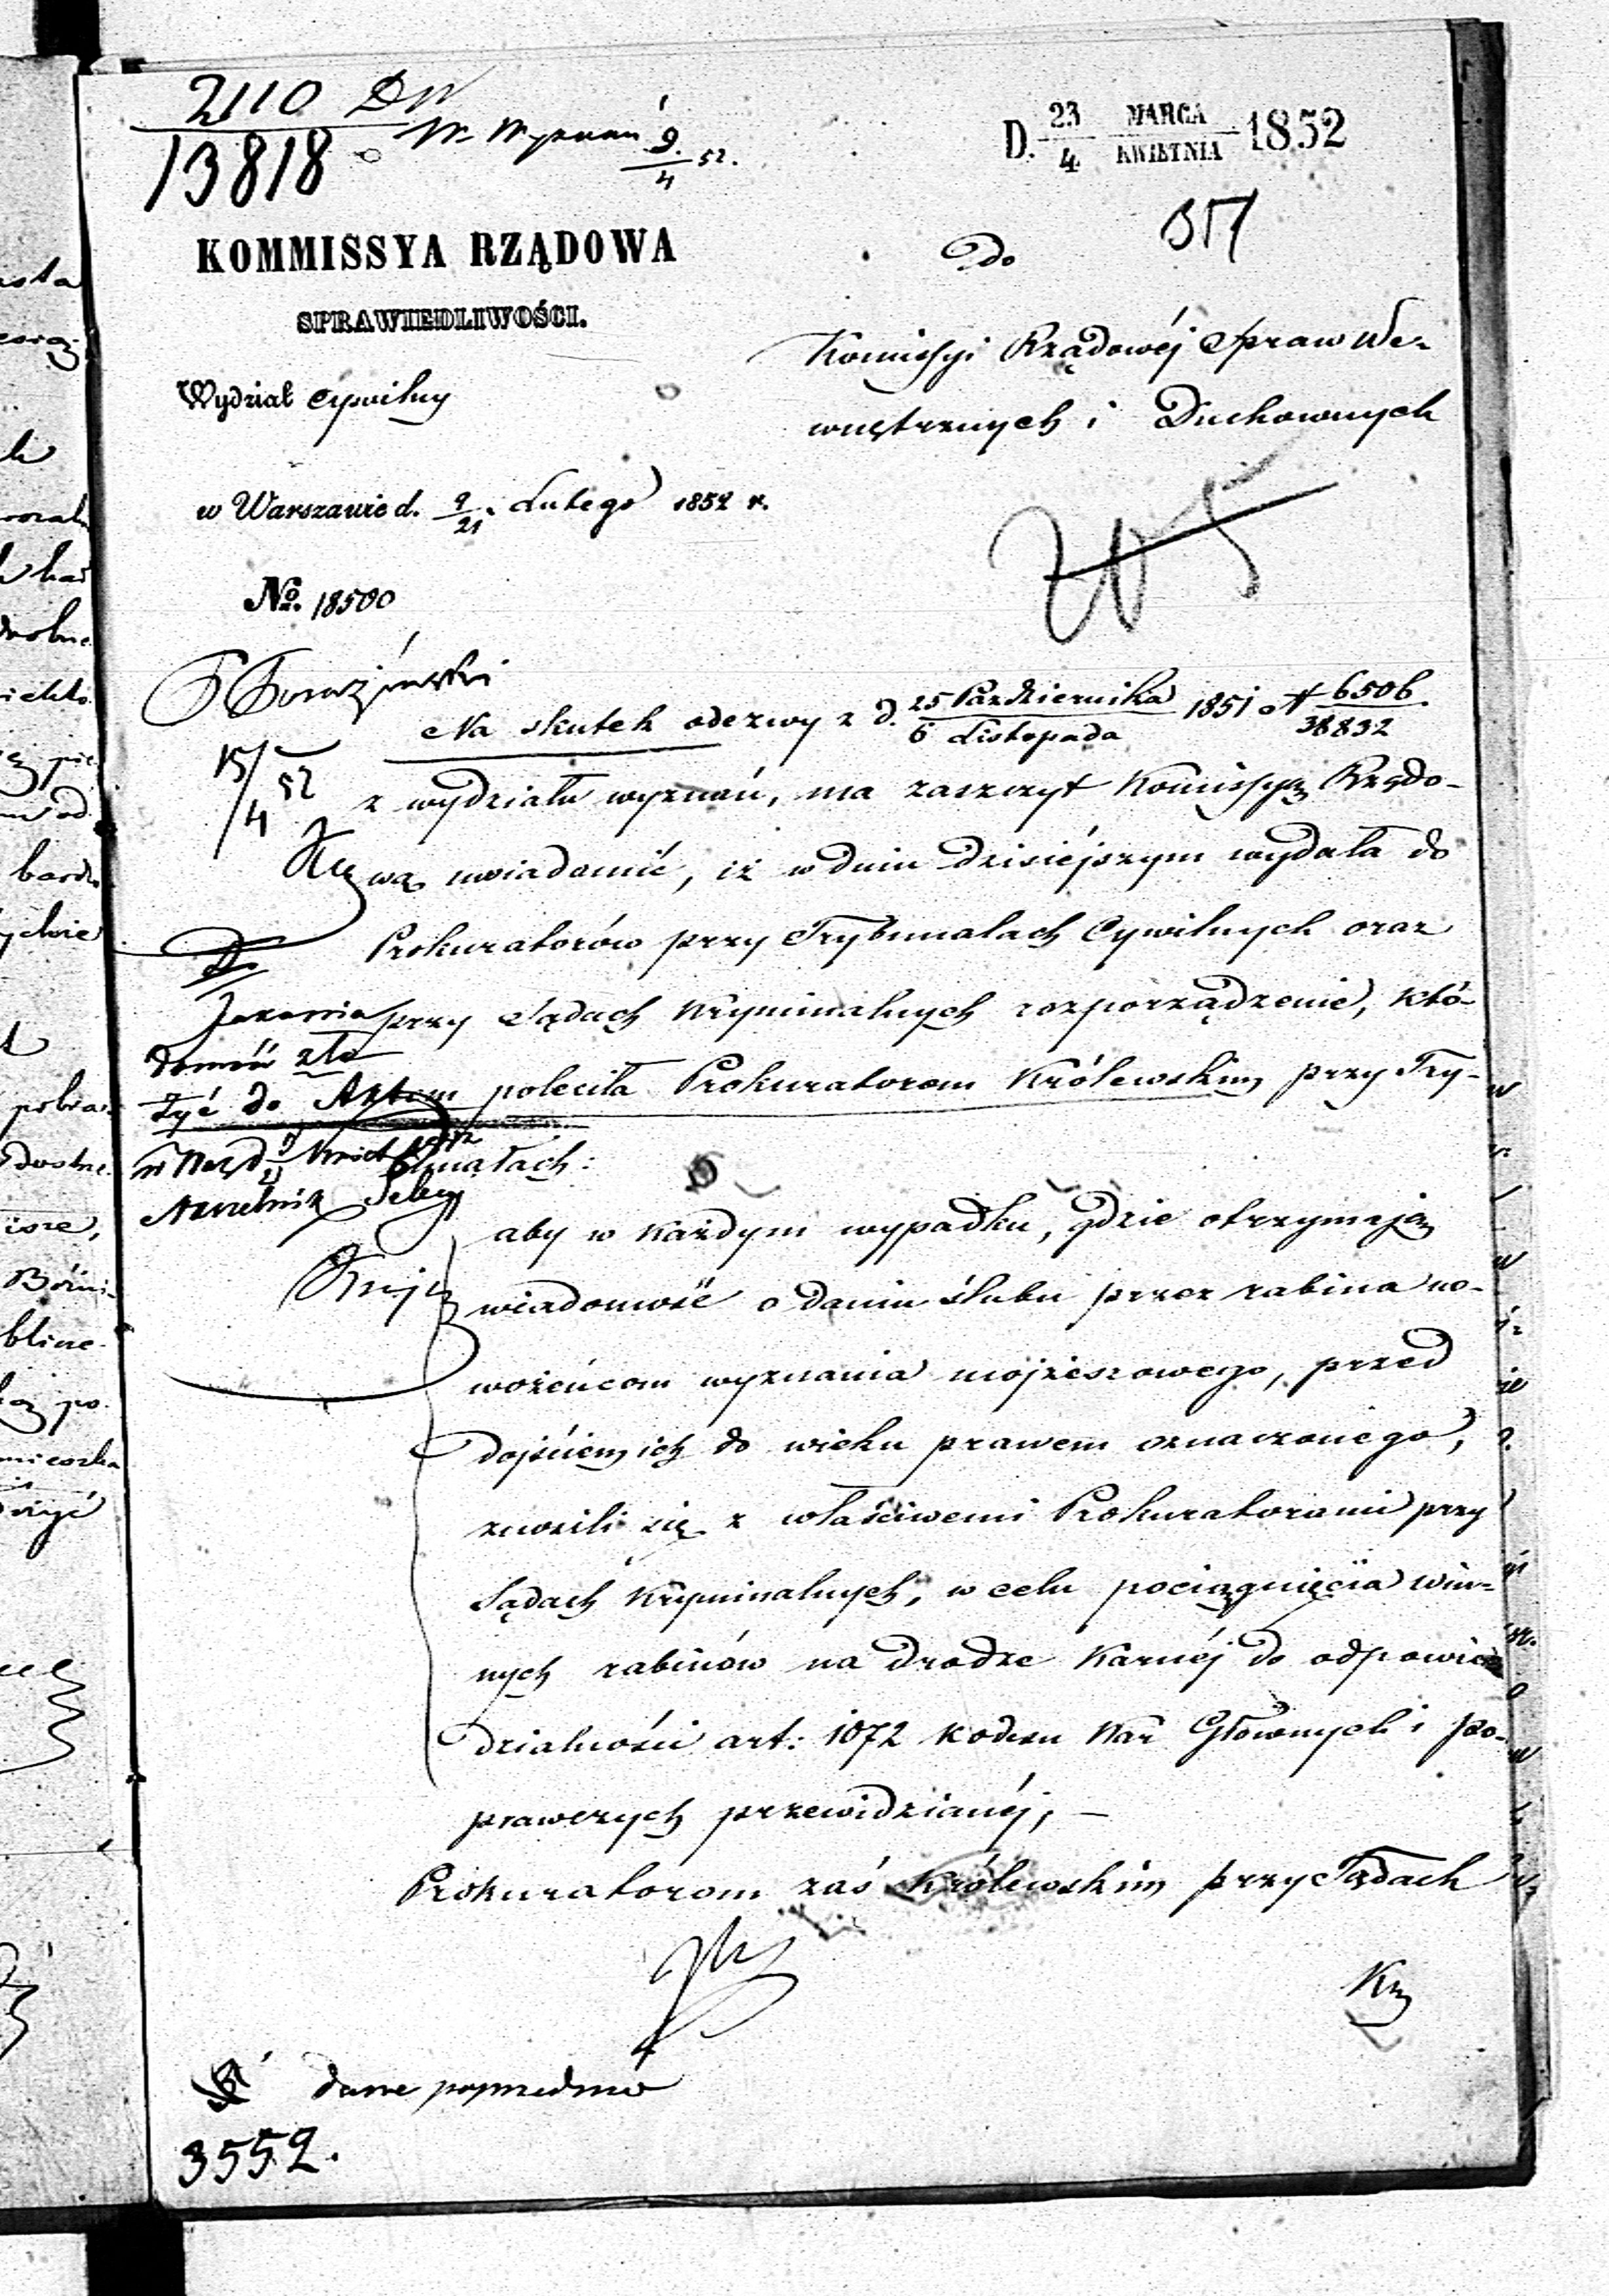 2110
13818
W. Wyznań 9/4 52.
D. 23/4 MARCA/KWIETNIA 1852
KOMMISSYA RZĄDOWA
SPRAWIEDLIWOŚCI.
Wydział Cywilny
w Warszawie d. 9/21 Lutego 1852 r.
No. 18500
Do
Komissyi Rządowéj Spraw We-
wnętrznych i Duchownych
15/4 52
Na skutek odezwy z d. 25 Października/6 Listopada 1851 N 6506/38832
z wydziału wyznań, ma zaszczyt Komissyą Rządo-
wą uwiadomić, iż w dniu dzisiéjszym wydała do
Prokuratorów przy Trybunałach Cywilnych oraz
przy Sądach Kryminalnych rozporządzenie, któ-
rem poleciła Prokuratorom Królewskim przy Try-
bunałach:
aby w każdym wypadku, gdzie otrzymają
wiadomość o daniu ślubu przez rabina no-
wożeńcom wyznania mojżeszowego, przed
dojściem ich do wieku prawem oznaczonego,
znosili się z właściwemi Prokuratorami przy
Sądach Kryminalnych, w celu pociągnięcia win-
nych rabinów na drodze karnéj do odpowie-
dzialności art: 1072 kodexu Kar Głównych i po-
prawczych przewidzianéj, –
Prokuratorom zaś Królewskim przy Sądach
Do
domów zło
żyć do Aktów
Kry
dane poprzednio
3552.